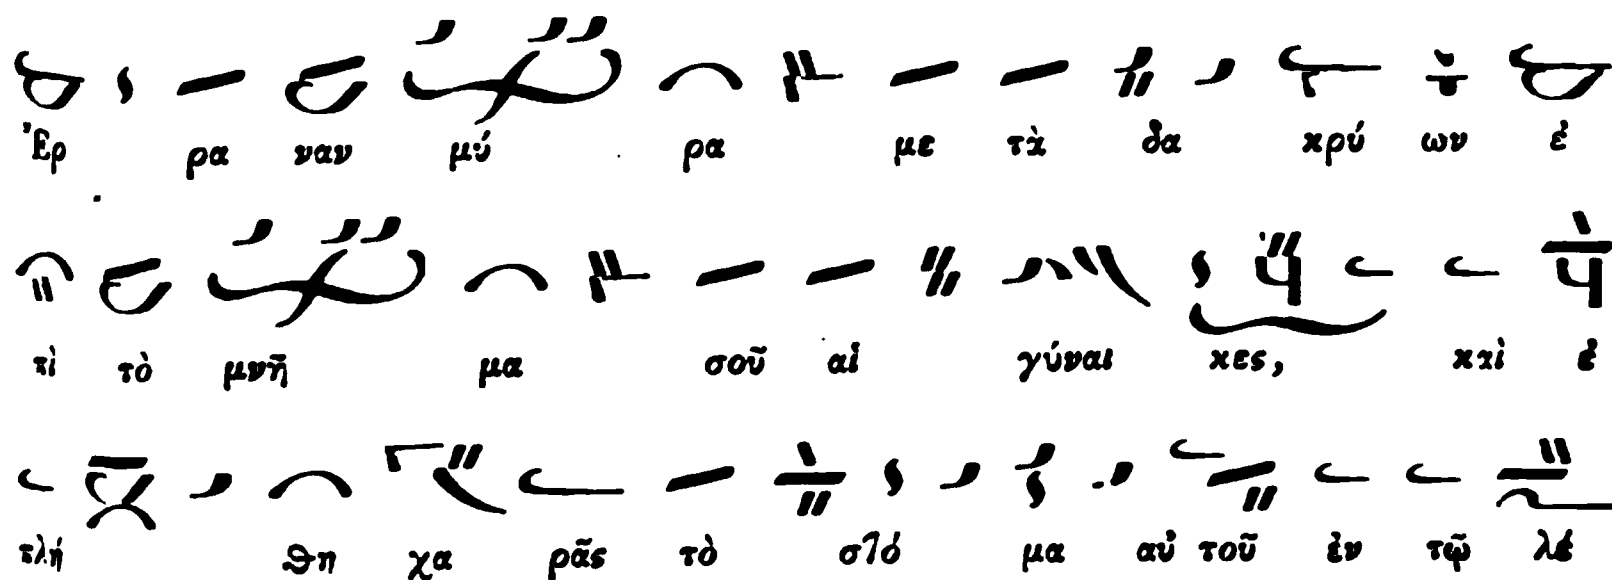 Ἐρ ρα ναν μύ ρα με τὰ δα κρύ ων ἐ
πὶ τὸ μνῆ μα σοῦ αἱ γύναι κες, καὶ ἐ
πλή θη χα ρᾶς τὸ στό μα αὐ τοῦ ἐν τῷ λέ